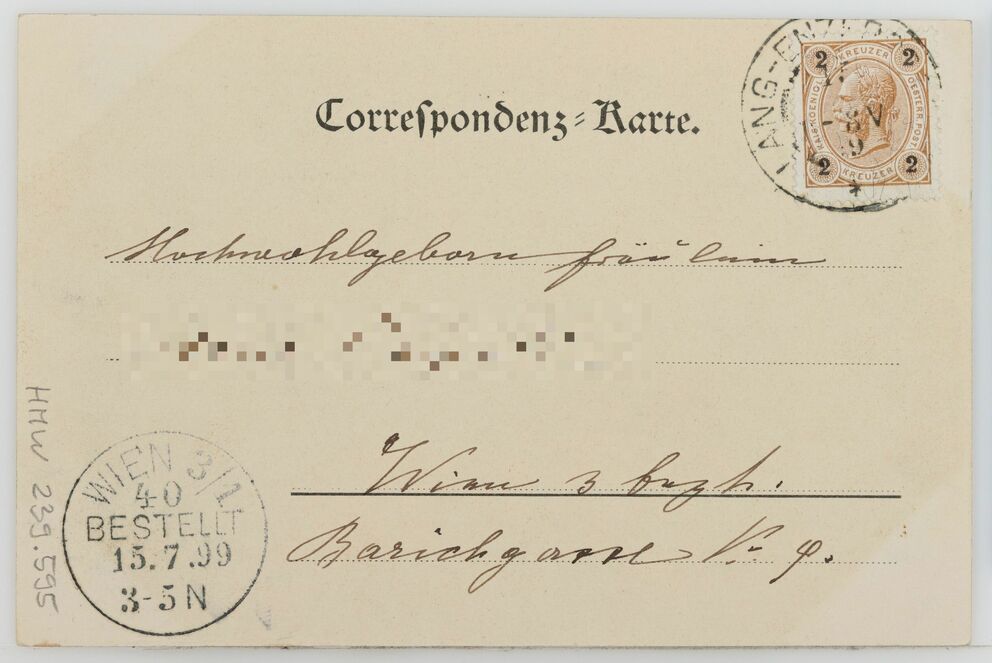 Correspondenz-Karte.
LANG-ENZERS
2 KREUZER 2
KAIS. KOENIGL. OESTERR. POST.
2 KREUZER 2
Hochwohlgeborn Fräulein
Wien 3 bezh.
Barichgasse No 9.
WIEN 3/1
40
BESTELLT
15.7.99
3-5 N
HMW 239.595